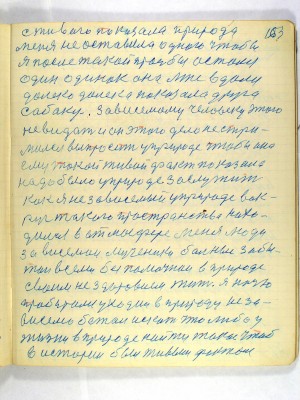 163
с живого показала природа
меня не оставила одного чтобы
я после такой просьбы остался
один одинок она мне вдали
далеко далеко показала друга
собаку. Зависимому человеку этого
не видат и он этого дела не стре-
мился выпросить у природе чтобы она
ему такой живой факт показала
надо было у природе заслужить
как я независимый у природе вок-
руг такого пространства нахо-
дился в атмосфере меня люди
зависимы мученики больные забы-
тые всеми беспомочные в природе
своим нездоровием жить. Я на это
прибираю уходил в природу неза-
висимо богом искать эту любов у
жизни в природе найти такое чтоб
в истории был живым фактом